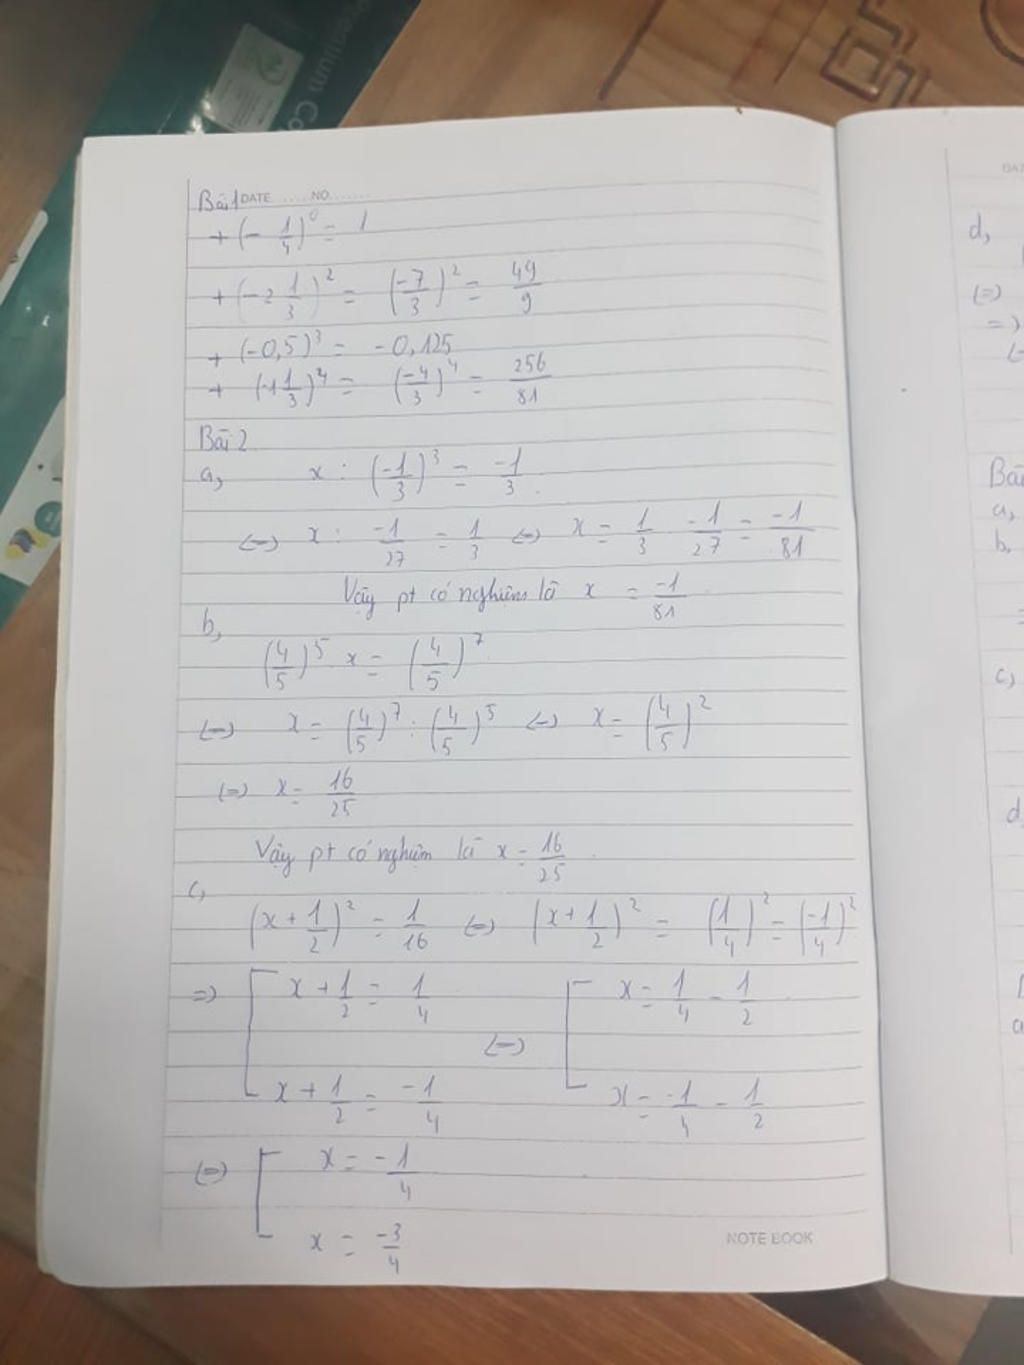 Premium Co
Bài 1 DATE ..... NO.......
+ (- 1/4)^0 = 1
+ (-2 1/3)^2 = (-7/3)^2 = 49/9
+ (-0,5)^3 = -0,125
+ (-1 1/3)^4 = (-4/3)^4 = 256/81
Bài 2
a, x : (-1/3)^3 = -1/3
(=) x : -1/27 = 1/3 (=) x = 1/3 -1/27 = -1/81
Vậy pt có nghiệm là x = -1/81
b,
(4/5)^5 x = (4/5)^7
(=) x = (4/5)^7 : (4/5)^5 (=) x = (4/5)^2
(=) x = 16/25
Vậy pt có nghiệm là x = 16/25
c,
(x + 1/2)^2 = 1/16 (=) (x + 1/2)^2 = (1/4)^2 = (-1/4)^2
=) [ x + 1/2 = 1/4 (=) [ x = 1/4 - 1/2
x + 1/2 = -1/4 x = -1/4 - 1/2
(=) [ x = -1/4
x = -3/4
NOTE BOOK
DAT
d,
(=)
=)
Bài
a,
b,
=
c,
d
a